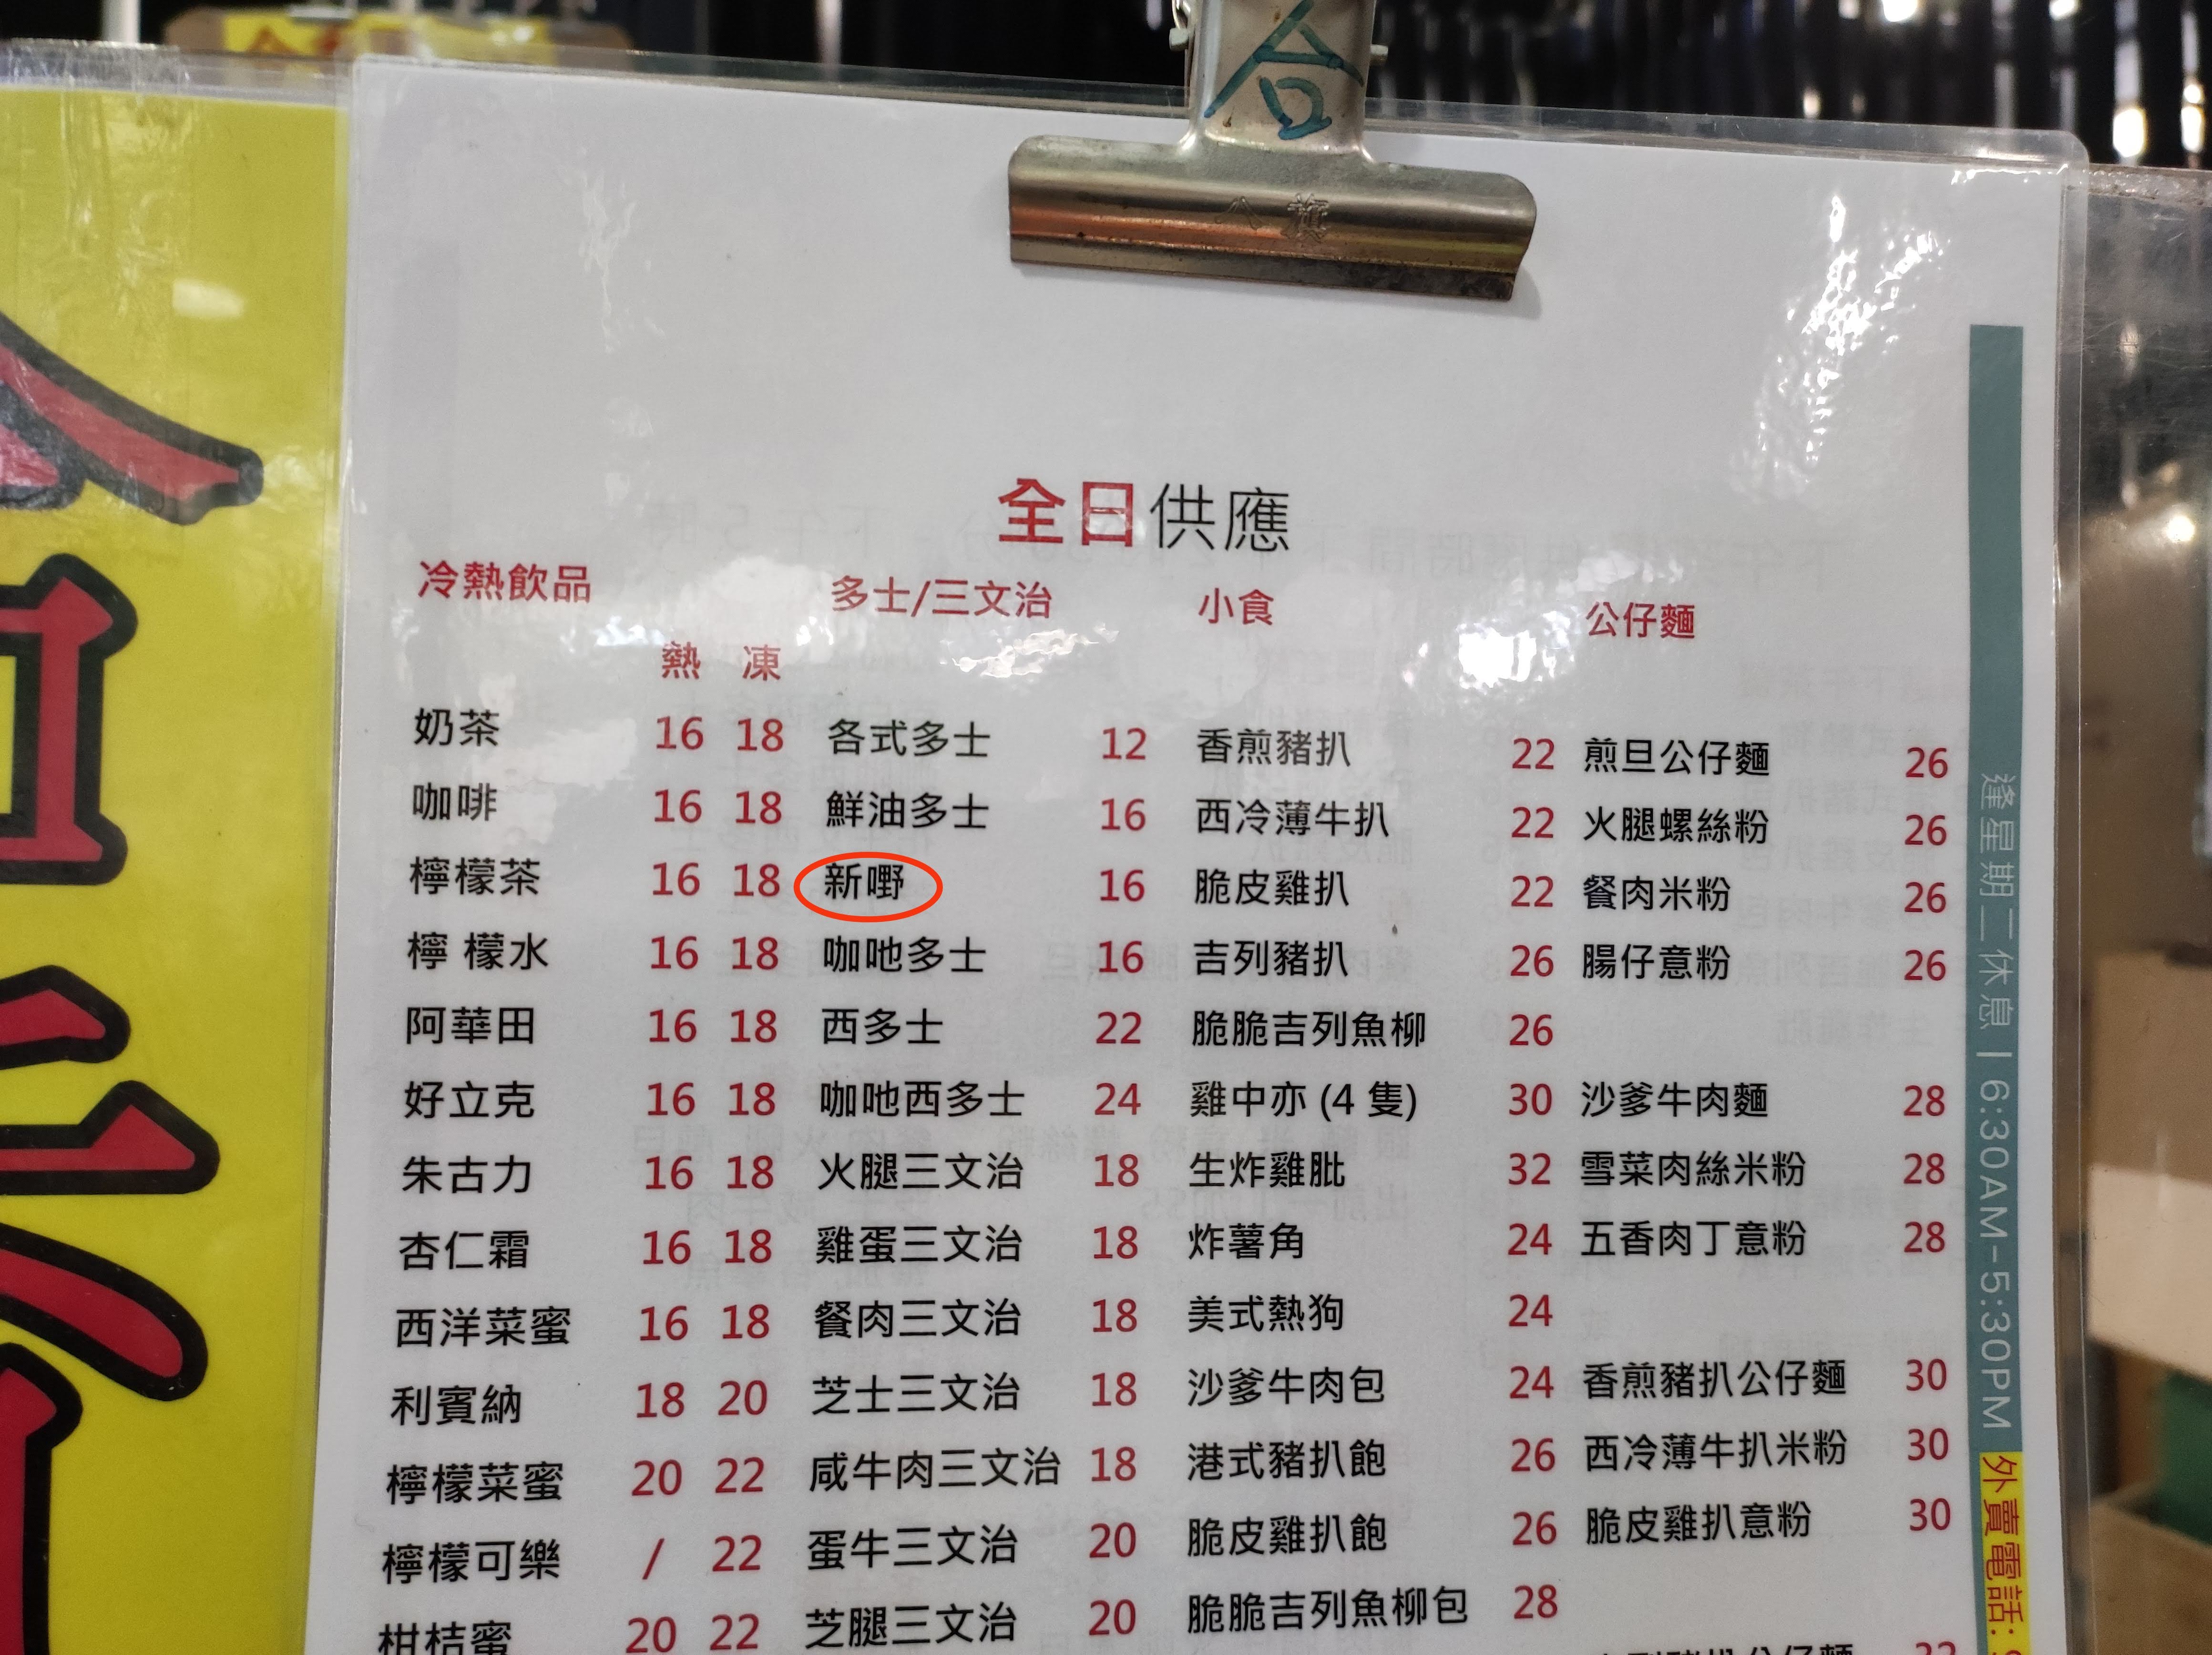 合
八旗
全日供應
冷熱飲品 多士/三文治 小食 公仔麵
熱 凍
奶茶 16 18 各式多士 12 香煎豬扒 22 煎旦公仔麵 26
咖啡 16 18 鮮油多士 16 西冷薄牛扒 22 火腿螺絲粉 26
檸檬茶 16 18 新嘢 16 脆皮雞扒 22 餐肉米粉 26
檸 檬水 16 18 咖吔多士 16 吉列豬扒 26 腸仔意粉 26
阿華田 16 18 西多士 22 脆脆吉列魚柳 26
好立克 16 18 咖吔西多士 24 雞中亦 (4 隻) 30 沙爹牛肉麵 28
朱古力 16 18 火腿三文治 18 生炸雞肶 32 雪菜肉絲米粉 28
杏仁霜 16 18 雞蛋三文治 18 炸薯角 24 五香肉丁意粉 28
西洋菜蜜 16 18 餐肉三文治 18 美式熱狗 24
利賓納 18 20 芝士三文治 18 沙爹牛肉包 24 香煎豬扒公仔麵 30
檸檬菜蜜 20 22 咸牛肉三文治 18 港式豬扒飽 26 西冷薄牛扒米粉 30
檸檬可樂 / 22 蛋牛三文治 20 脆皮雞扒飽 26 脆皮雞扒意粉 30
柑桔蜜 20 22 芝腿三文治 20 脆脆吉列魚柳包 28
逢星期二休息 | 6:30AM-5:30PM 外賣電話: